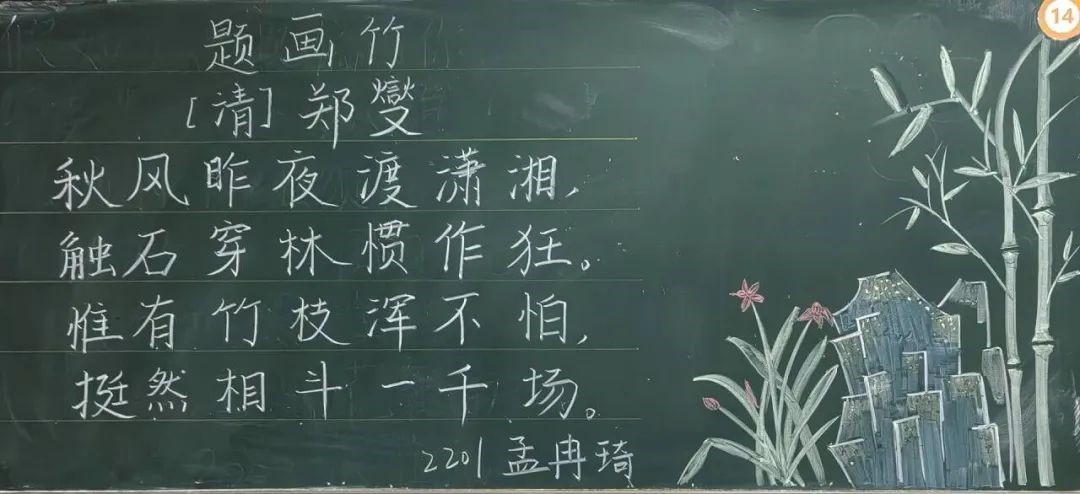 题画竹
[清]郑燮
秋风昨夜渡潇湘,
触石穿林惯作狂。
惟有竹枝浑不怕,
挺然相斗一千场。
2201 孟冉琦
14